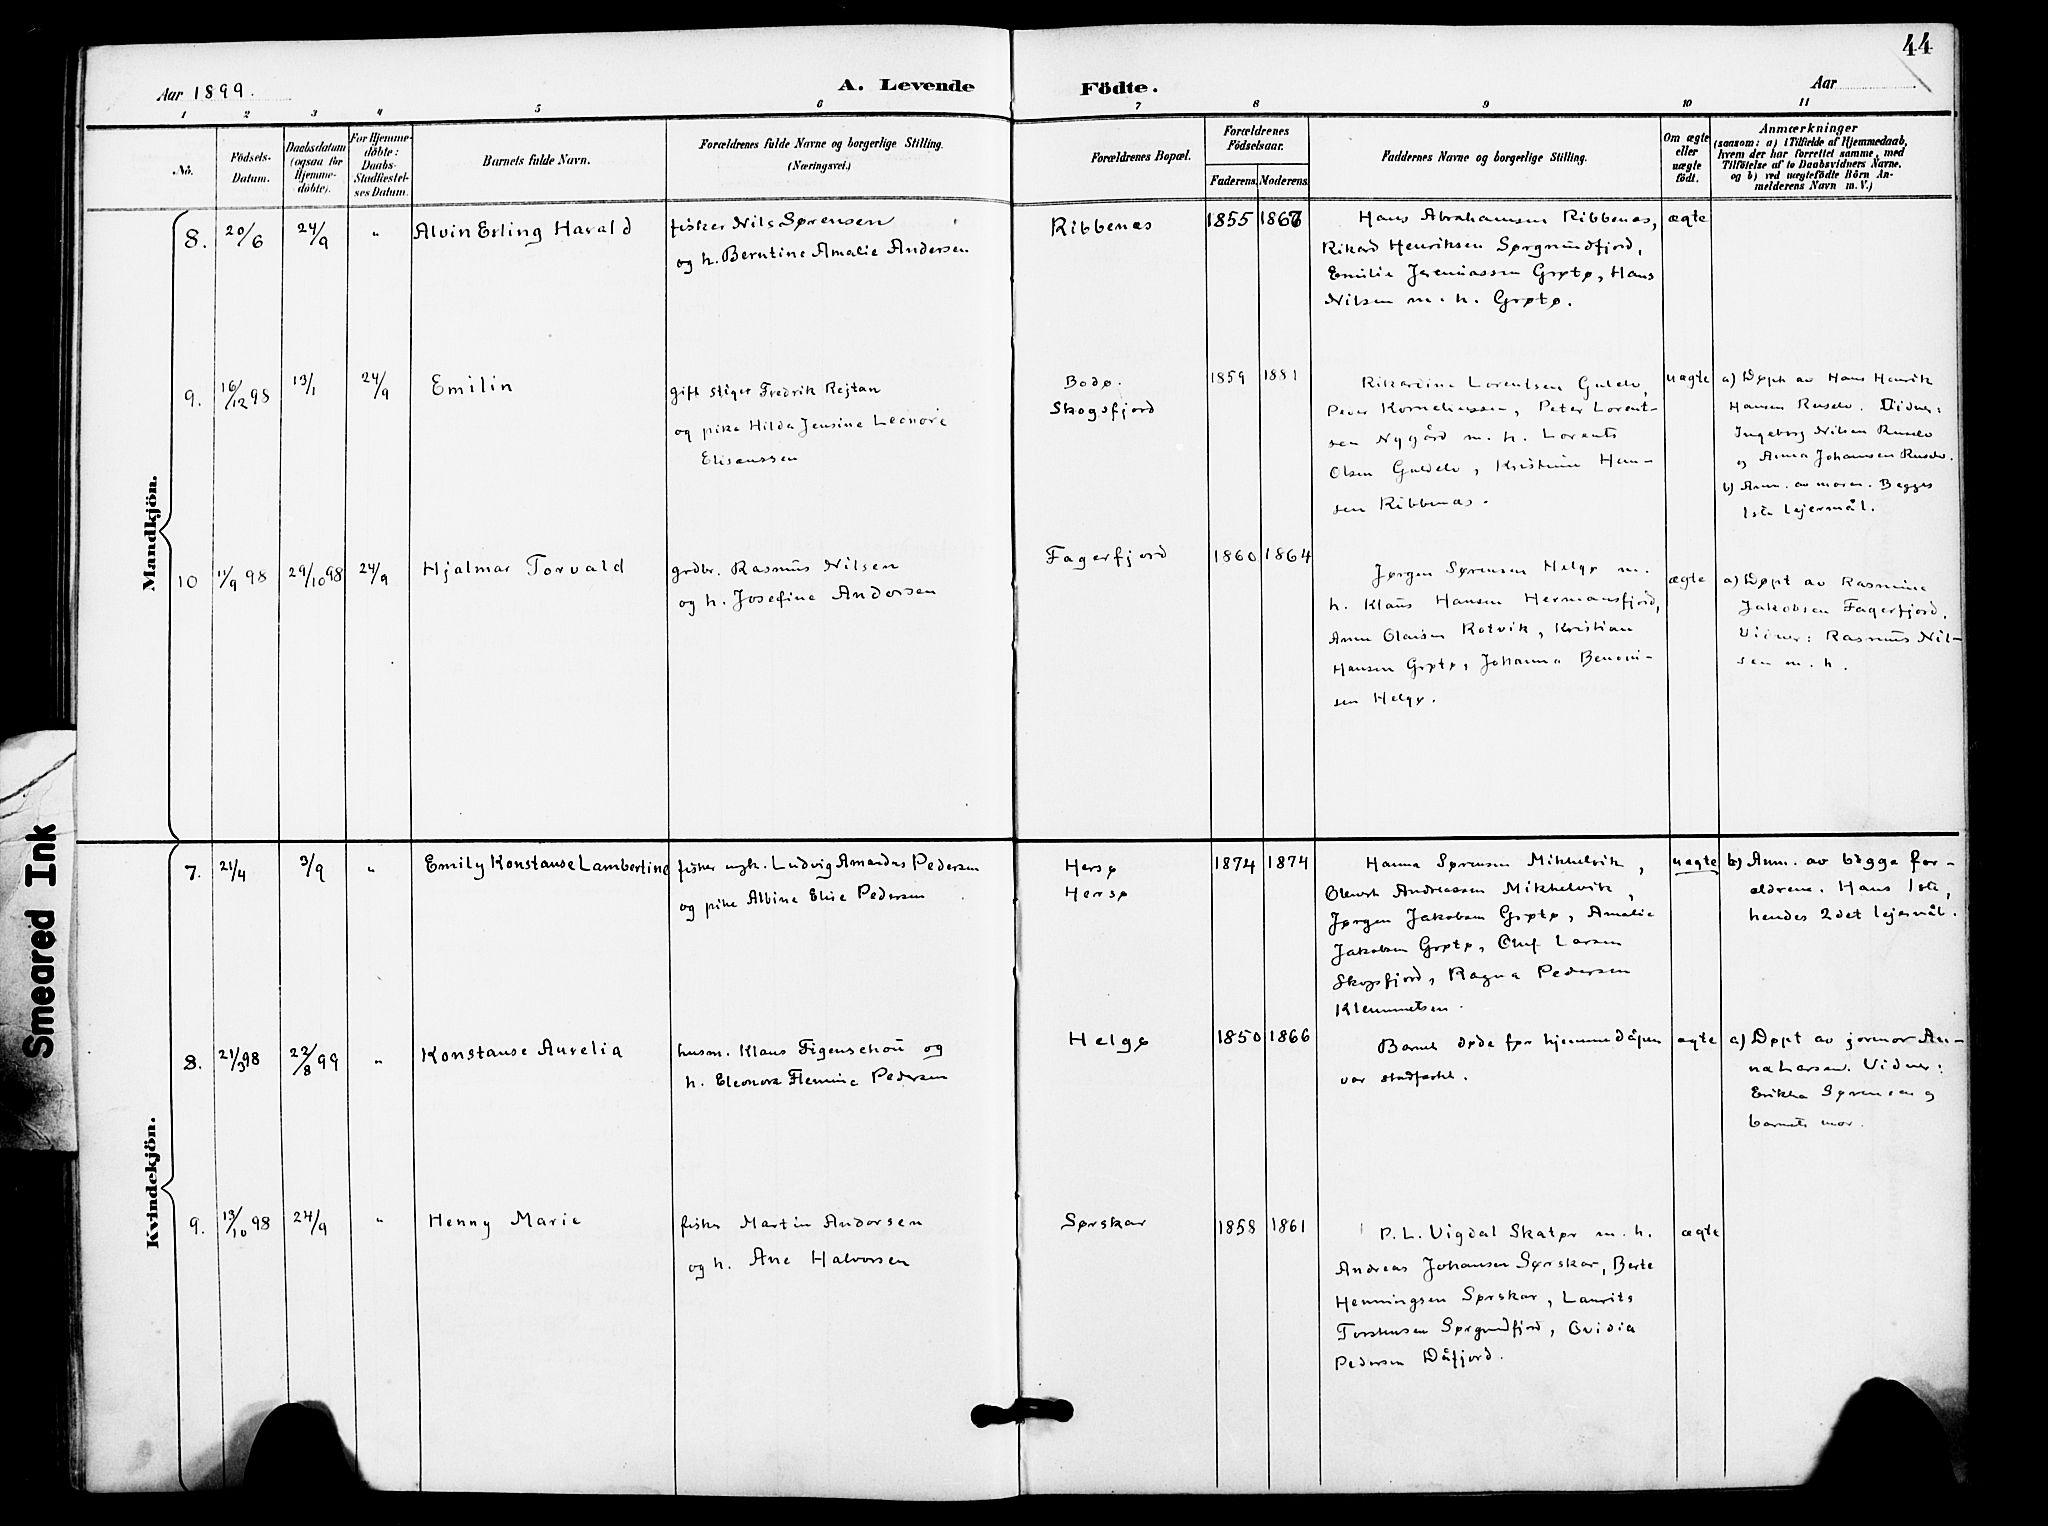 44
Aar 1899.
A. Levende Födte.
Aar
1 2 3 4 5 6 7 8 9 10 11
No.
Födsels-
Datum.
Daabsdatum
(ogsaa for
Hjemme-
döbte).
For Hjemme-
döbte:
Daabs-
Stadfæstel-
ses Datum.
Barnets fulde Navn.
Forældrenes fulde Navne og borgerlige Stilling.
(Næringsvei.)
Forældrenes Bopæl.
Forældrenes
Födselsaar.
Faderens. Moderens.
Faddernes Navne og borgerlige Stilling.
Om ægte
eller
uægte
födt.
Anmærkninger
(saasom: a) i Tilfælde af Hjemmedaab,
hvem der har forrettet samme, med
Tilföielse af to Daabsvidners Navne.
og b) ved uægtefödte Börn An-
melderens Navn m. V.)
Mandkjön.
8. 20/6 24/9 " Alvin Erling Harald
fisker Nils Sørensen
og h. Berntine Amalie Andersen
Ribbenæs
1855 1866
Hans Abrahamsen Ribbenæs,
Rikard Henriksen Sørgrundfjord,
Emilie Jeremiassen Grøtø, Hans
Nilsen m. h. Grøtø.
ægte
9. 16/12 98 13/1 24/9 Emilin
gift stiger Fredrik Rejtan
og pike Hilda Jensine Leonore
Elisenssen
Bodø.
Skogsfjord
1859 1881
Rikardine Lorentsen
Peder Korneliussen, Peter Lorent-
sen Nygård m. h. Lorents
Olsen Kristine Han-
sen Ribbenæs.
uægte
a) Døpt av Hans Henrik
Hansen Vidner:
Ingeborg Nilsen
og Anna Johansen
b) Anm. av moren. Begges
1ste lejermål.
10 11/9 98 29/10 98 24/9 Hjalmar Torvald
grdbr. Rasmus Nilsen
og h. Josefine Andersen
Fagerfjord
1860 1864
Jørgen Sørensen Helgø m.
h. Klaus Hansen Hermansfjord,
Anne Olaisen Rotvik, Kristian
Hansen Grøtø, Johanna Benoni-
sen Helgø.
ægte
a) Døpt av Rasmine
Jakobsen Fagerfjord.
Vidner: Rasmus Nil-
sen m. h.
Kvindekjön.
7. 21/4 3/9 " Emily Konstanse Lambertine
fisker ungk. Ludvig Amandus Pedersen
og pike Albine Elise Pedersen
Hersø
Hersø
1874 1874
Hanna Sørensen Mikkelvik,
Andreassen Mikkelvik,
Jørgen Jakobsen Grøtø, Amalie
Jakobsen Grøtø, Oluf Larsen
Skogsfjord, Ragna Pedersen
Klemmetsen.
uægte
b) Anm. av begge for-
ældrene. Hans 1ste,
hendes 2det lejermål.
8. 21/3 98 22/8 99 " Konstanse Aurelia
husm. Klaus Figenschou og
h. Eleonora Flemine Pedersen
Helgø
1850 1866
Barnet døde før hjemmedåpen
var stadfæstet.
ægte
a) Døpt av jormor An-
na Larsen. Vidner:
Erikka Sørensen og
barnets mor.
9. 13/10 98 24/9 " Henny Marie
fisker Martin Andersen
og h. Ane Halvorsen
Sørskar
1858 1861
P. L. Vigdal Skatør m. h.
Andreas Johansen Sørskar, Berte
Henningsen Sørskar, Laurits
Torstensen Sørgrundfjord, Ovidia
Pedersen Dåfjord.
ægte
Smeared Ink